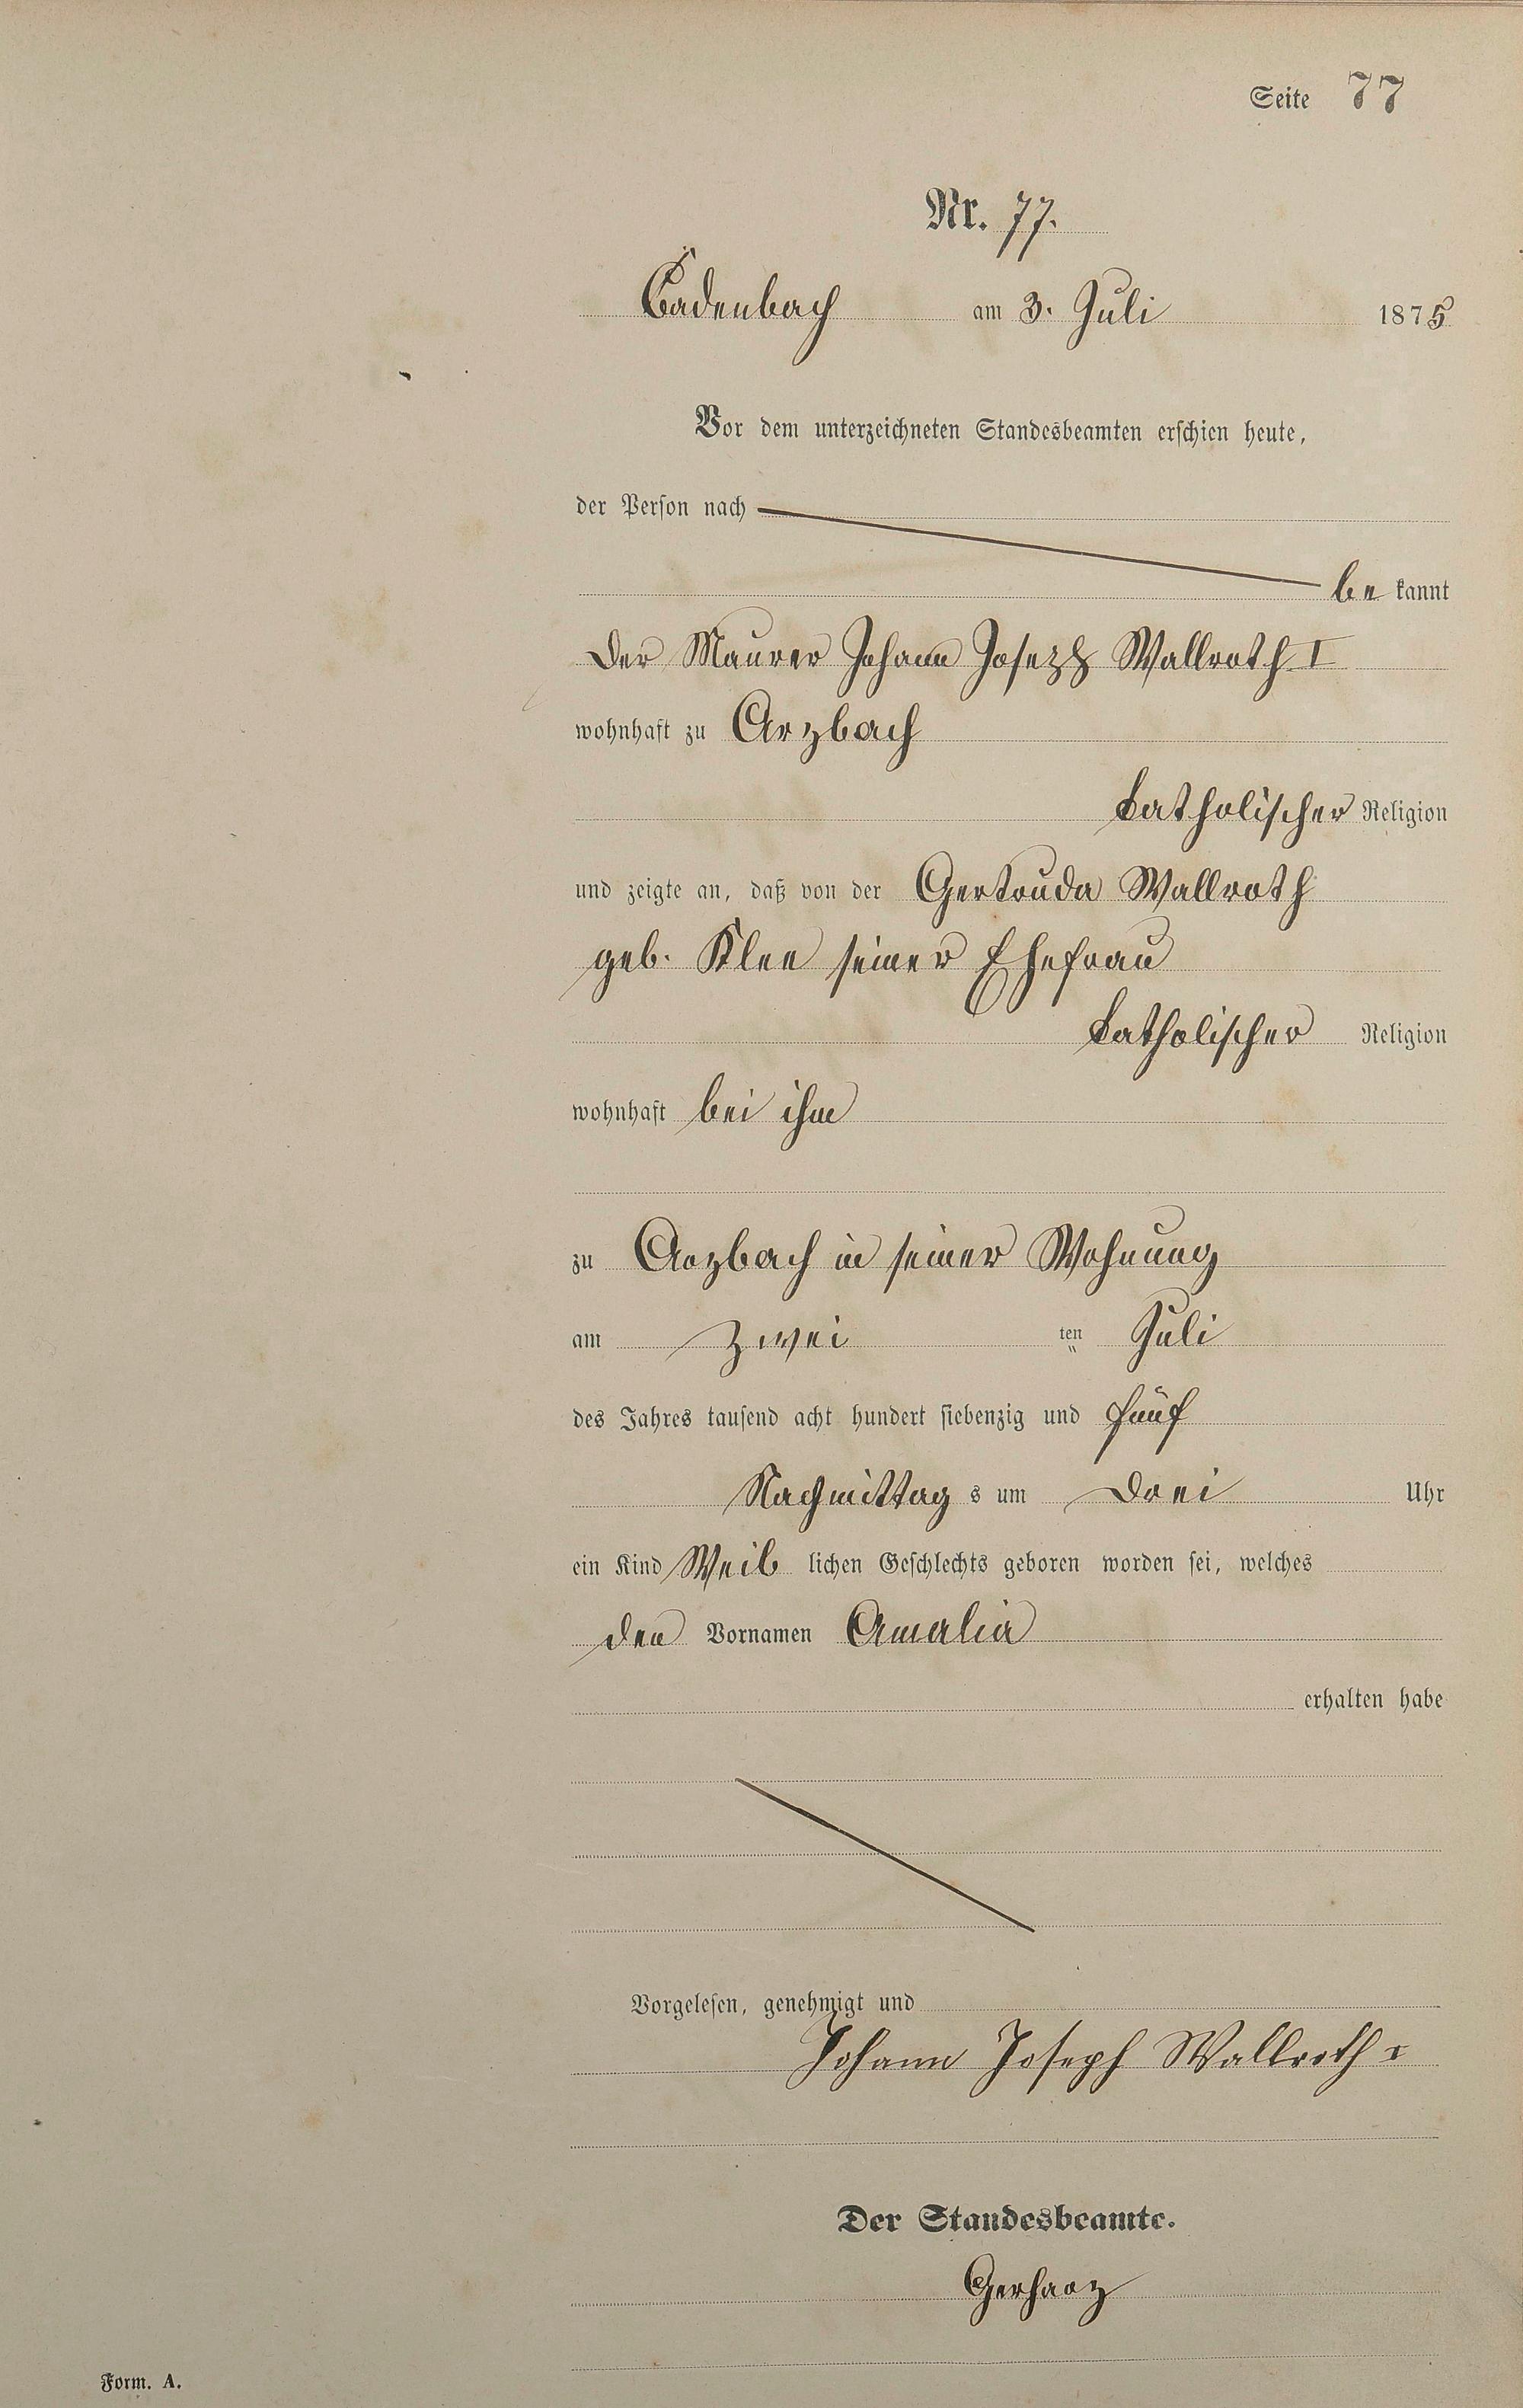 Seite 77
Nr. 77.
Cadenbach am 3. Juli 1875
Vor dem unterzeichneten Standesbeamten erschien heute,
der Person nach
be kannt
der Maurer Johann Joseph Wallroth I
wohnhaft zu Arzbach
katholischer Religion
und zeigte an, daß von der Gertruda Wallroth
geb. Klee seiner Ehefrau
katholischer Religion
wohnhaft bei ihm
zu Arzbach in seiner Wohnung
am zwei ten Juli
des Jahres tausend acht hundert siebenzig und fünf
Nachmittag s um drei Uhr
ein Kind Weib lichen Geschlechts geboren worden sei, welches
den Vornamen Amalia
erhalten habe
Vorgelesen, genehmigt und
Johann Joseph Wallroth I
Der Standesbeamte.
Gerharz
Form. A.